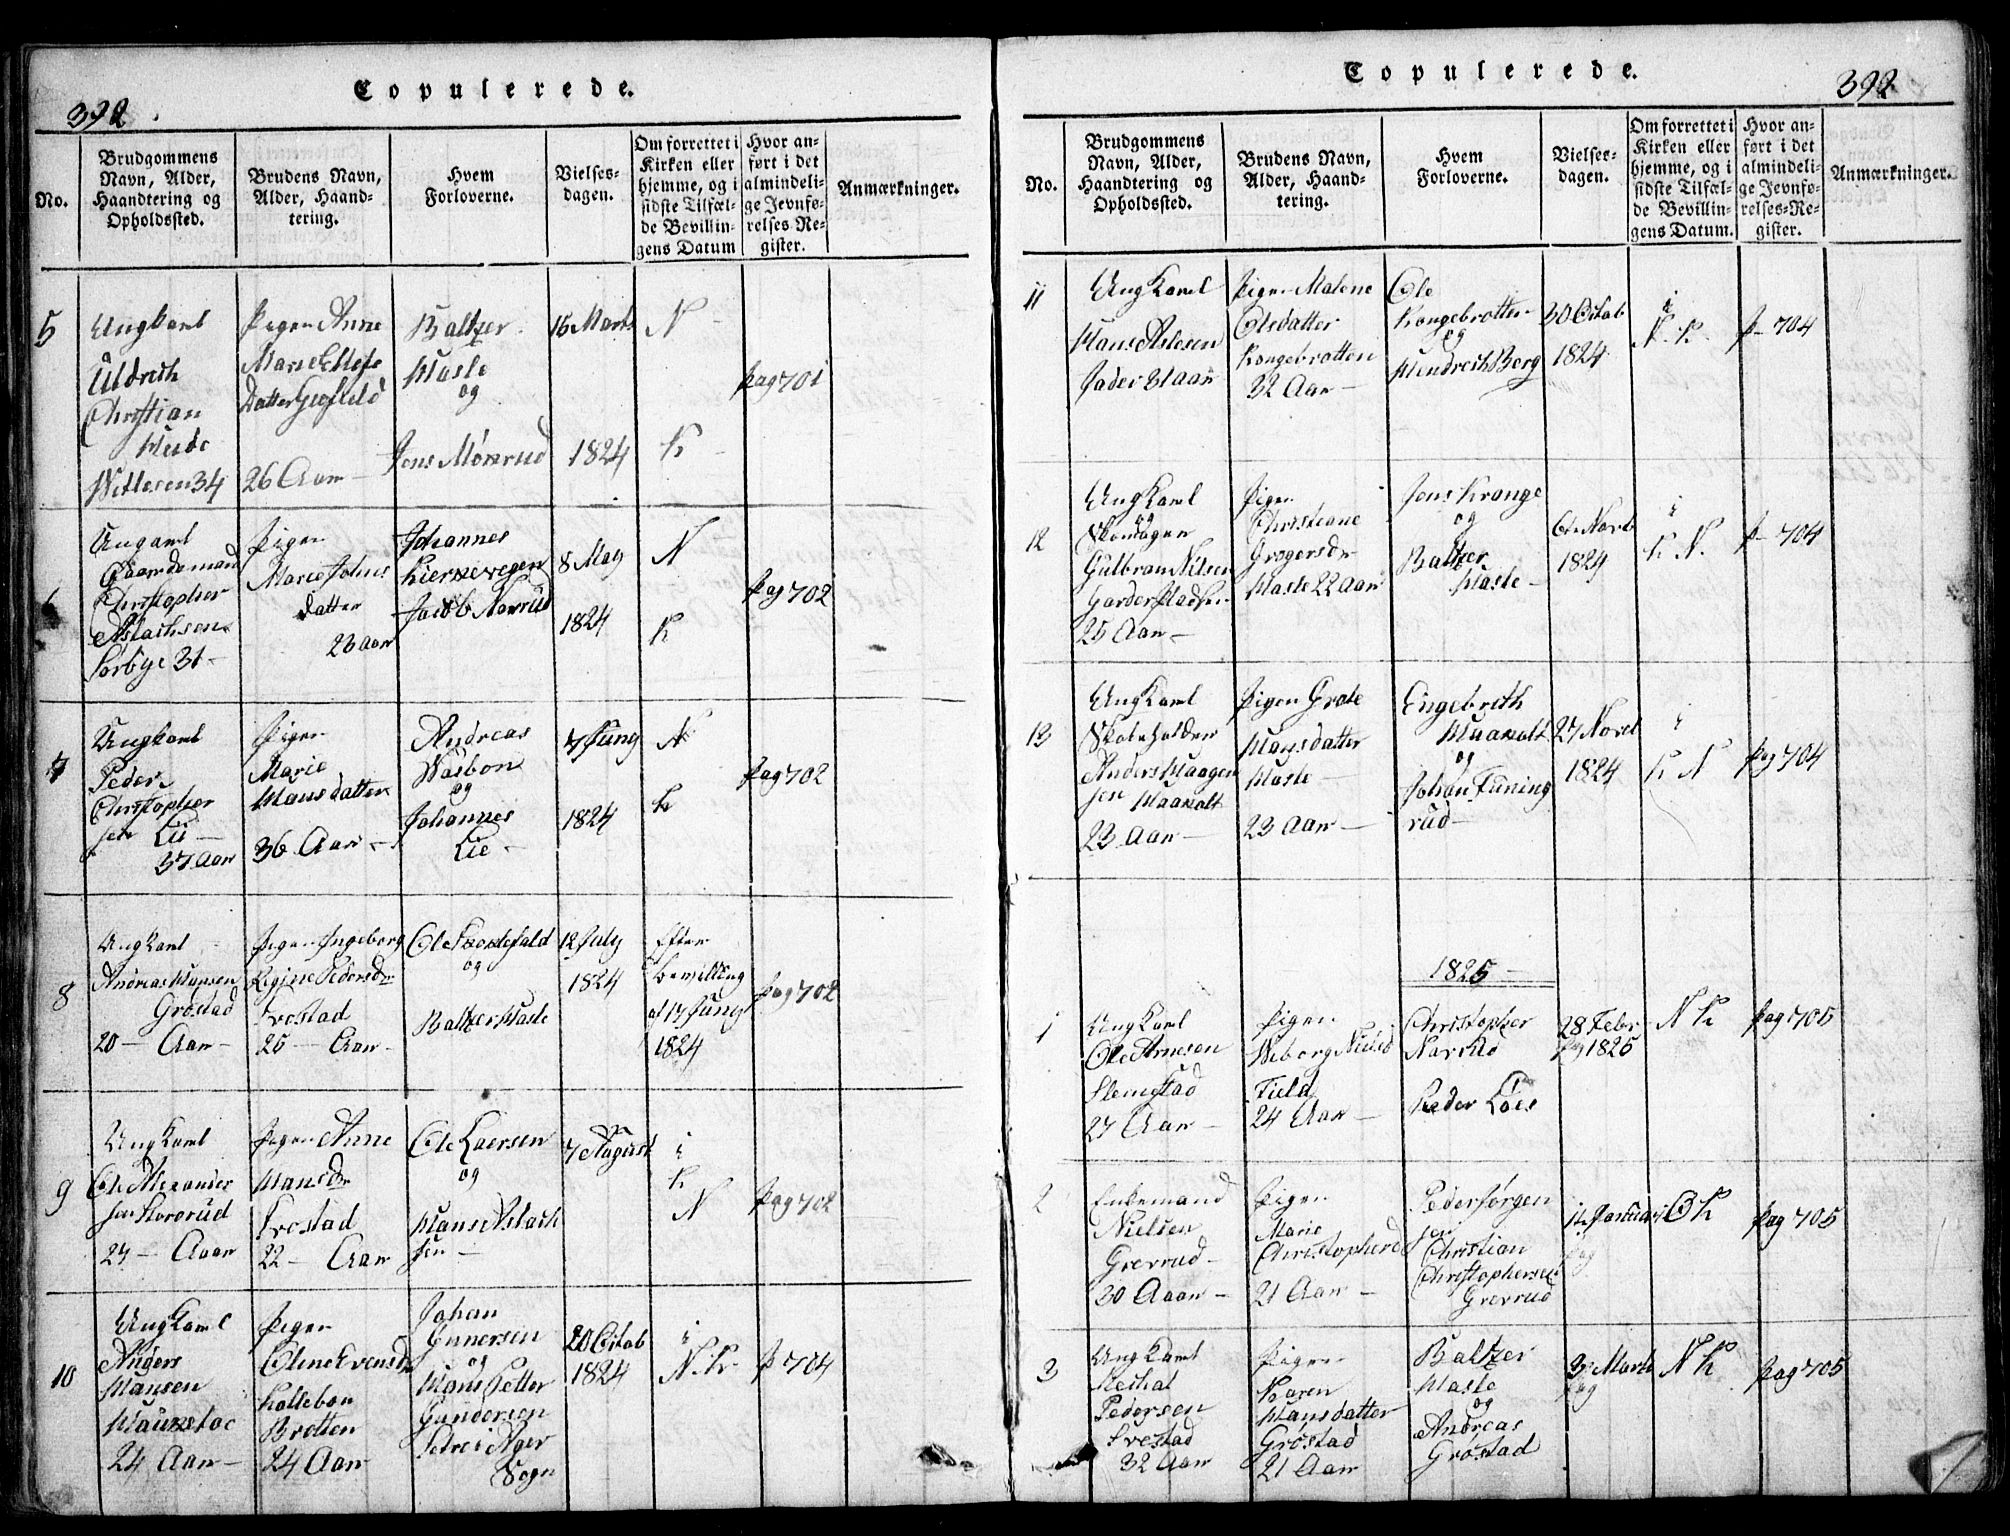 Copulerede.
392
No.
Brudgommens
Navn, Alder,
Haandtering og
Opholdssted.
Brudens Navn,
Alder, Haand-
tering.
Hvem
Forloverne.
Vielses-
dagen.
Om forrettet i
Kirken eller
hjemme, og i
sidste Tilfæl-
de Bevillin-
gens Datum
Hvor an-
ført i det
almindeli-
ge Jevnfø-
relses-Re-
gister.
Anmærkninger.
5
Ungkarl
Uldrich
Christian
Wittesen 34
Pigen Anne
Marie
Datter
26 Aar
Baltzer
Hasle
og
Jens Mørrud
16 Marts
1824
N
K
pag 701
Gaardemand
Christopher
Aslachsen
Sorbye 31
Pigen
Marie Johns
datter
23 aar
Johannes
Kiernevegen
Jacob Narrud
8 May
1824
N
K
pag 702
7
Ungkarl
Peder
Christopher
sen Lii
37 Aar
Pigen
Marie
Hansdatter
36 Aar
Andreas
Johannes
Lie
7 Juny
1824
N
K
pag 702
8
Ungkarl
Andreas Hansen
Grøstad
20 Aar
Pigen Ingeborg
Pedersdr
25 Aar
Ole
og
Baltzer Hasle
12 July
1824
Efter
bevilling
af 17 Juny
1824
pag 702
9
Ungkarl
Ole Alexander
sen
24 Aaar
Pigen Anne
Hansdr
22 Aar
Ole Larsen
og
Hans Aslach
sen
7 August
i
K
N
pag 702
10
Ungkarl
Anders
Hansen
24 Aar
Pigen
Oline Evensdr
Kollebon
Brotten
24 Aar
Johan
Gunersen
og
Hans Petter
Gundersen
Ager
Sogn
20 Octob
1824
i
N. K
p 704
Copulerede.
392
No.
Brudgommens
Navn, Alder,
Haandtering og
Opholdssted.
Brudens Navn,
Alder, Haand-
tering.
Hvem
Forloverne.
Vielses-
dagen.
Om forrettet i
Kirken eller
hjemme, og i
sidste Tilfæl-
de Bevillin-
gens Datum.
Hvor an-
ført i det
almindeli-
ge Jevnfø-
relses-Re-
gister.
Anmærkninger.
11
Ungkarl
Hans Aslesen
Jader 31 aar
Pigen Malene
Olsdatter
Kongebrotten
32 Aar
Ole
Kongebrotten
og
Hendrich Berg
30 Octob
1824
i
N. K
p 704
12
Ungkarl
og
Gulbran Nilsen
25 Aar
Pigen
Christiane
Gregersdr
Hasle 22 aar
Jens Krange
og
Baltzer
Hasle
6te Novb
1824
i
K N.
p 704
13
Ungkarl
Skoleholder
Anders Haagen
sen
23 Aar
Pigen Grete
Hansdatter
Hasle
23 Aar
Engebreth
og
Johan
rud
27 Novb
1824
i
K N
pag 704
1825
1
Ungkarl
Ole Arnesen
Slemstad
27 Aar
Pigen
Field
24 Aar
Christopher
Narrud
Peder Løes
28 Febr
1825
N K
pag 705
2
Enkemand
Nielsen
Grevrud
30 Aaar
Pigen
Marie
Christopherd
21 Aar
Peder Jørgen
sen
Christian
Christophersen
Grevrud
14 Januari
O K
pag 705
3
Ungkarl
Pedersen
32 Aar
Pigen
Karen
Hansdatter
Grøstad
21 Aar
Baltzer
Hasle
og
Andreas
Grøstad
Marts
N K
pag 705